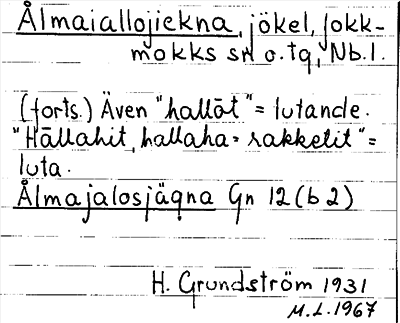 Ålmaiallojiekna, jökel, Jokk-
mokks sn o. tg, Nb. l.
(forts.) Även "hallōt" = lutande.
"Hāllahit, hallaha = rakkelit" =
luta.
Ålmajalosjägna Gn 12 (b 2)
H. Grundström 1931
M.L. 1967